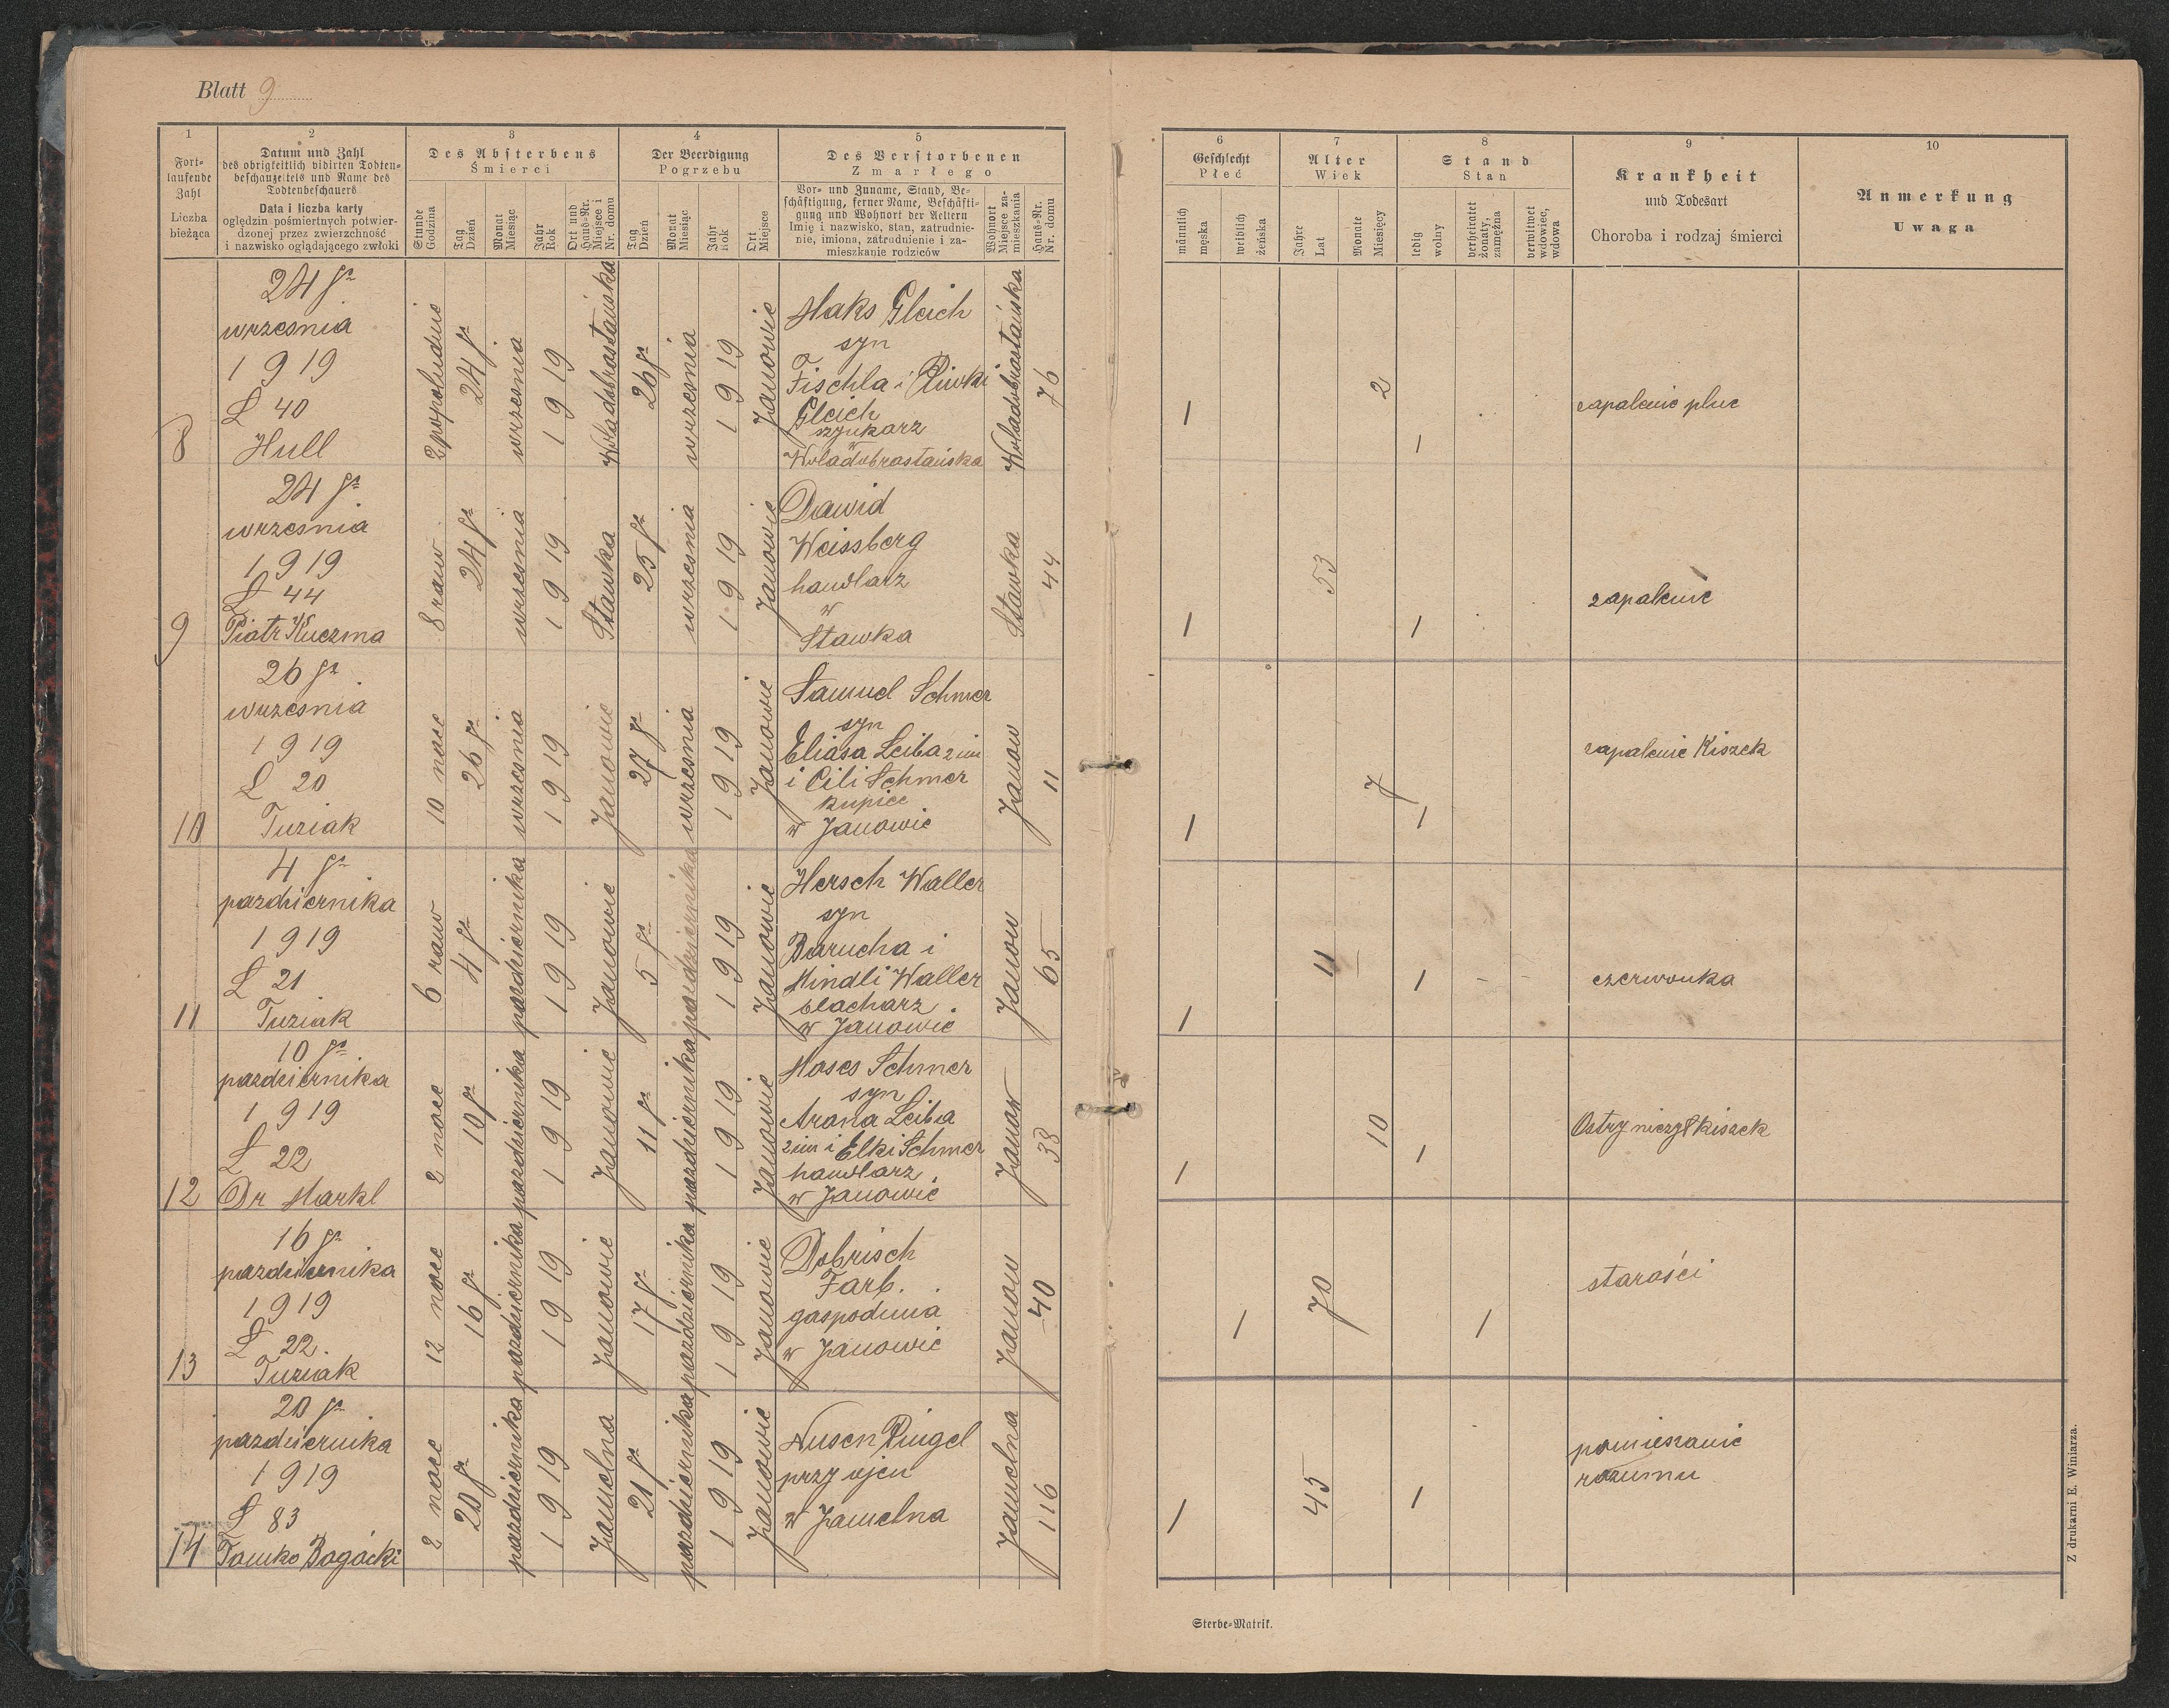 Blatt 9
1
Fort-
laufende
Zahl
Liczba
bieżąca
2
Datum und Zahl
des obrigkeitlich vidirten Todten-
beschauzettels und Name des
Todtenbeschauers
Data i liczba karty
oględzin pośmiertnych potwier-
dzonej przez zwierzchność
i nazwisko oglądającego zwłoki
3
Des Absterbens
Śmierci
Stunde
Godzina
Tag
Dzień
Monat
Miesiąc
Jahr
Rok
Ort und
Haus-Nr.
Miejsce i
Nr. domu
4
Der Beerdigung
Pogrzebu
Tag
Dzień
Monat
Miesiąc
Jahr
Rok
Ort
Miejsce
5
Des Verstorbenen
Zmarłego
Vor- und Zuname, Stand, Be-
schäftigung, ferner Name, Beschäfti-
gung und Wohnort der Aeltern
Imię i nazwisko, stan, zatrudnie-
nie, imiona, zatrudnienie i za-
mieszkanie rodziców
Wohnort
Miejsce za-
mieszkania
Haus-Nr.
Nr. domu
6
Geschlecht
Płeć
männlich
męska
weiblich
żeńska
7
Alter
Wiek
Jahre
Lat
Monate
Miesięcy
8
Stand
Stan
ledig
wolny
verheiratet
żonaty,
zamężna
verwitwet
wdowiec,
wdowa
9
Krankheit
und Todesart
Choroba i rodzaj śmierci
10
Anmerkung
Uwaga
8
24 go
wrzesnia
1919
L 40
Hull
2 popoludnie
24 go
wrzesnia
1919
Woladobrostańska
26 go
wrzesnia
1919
Janowie
Maks Gleich
syn
Fischla i Riwki
Gleich
szynkarz
w
Woladobrostańska
Woladobrostańska
76
1
2
1
zapalenie pluc
9
24 go
wrzesnia
1919
L 44
Piotr Kuczma
8 raw
24 go
wrzesnia
1919
Stawka
25 go
wrzesnia
1919
Janowie
Dawid
Weissberg
handlarz
w
Stawka
Stawka
44
1
53
1
zapalenie
10
26 go
wrzesnia
1919
L 20
Tuziak
10 noce
26 go
wrzesnia
1919
Janowie
27 go
wrzesnia
1919
Janowie
Samuel Schmer
syn
Eliasa Leiba 2 im
i Cili Schmer
kupiec
w Janowie
Janow
11
1
7
1
zapalenie Kiszek
11
4 go
pazdziernika
1919
L 21
Tuziak
6 raw
4 go
pazdziernika
1919
Janowie
5 go
pazdziernika
1919
Janowie
Hersch Waller
syn
Barucha i
Mindli Waller
blacharz
w Janowie
Janow
65
1
11 –
1 – –
czerwonka
12
10 go
pazdziernika
1919
L 22
Dr Markl
2 noce
10 go
pazdziernika
1919
Janowie
11 go
pazdziernika
1919
Janowie
Moses Schmer
syn
Arona Leiba
2 im i Elki Schmer
handlarz
w Janowie
Janow
38
1
10
1
Ostry nieżyt kiszek
13
16 go
pazdziernika
1919
L 22.
Tuziak
12 noce
16 go
pazdziernika
1919
Janowie
17 go
pazdziernika
1919
Janowie
Dobrisch
Farb.
gospodinia
w Janowie
Janow
40
1
70
1
starości
14
20 go
pazdziernika
1919
L 83
Tomko Bogacki
2 noce
20 go
pazdziernika
1919
Jamelna
21 go
pazdziernika
1919
Janowie
Nusen Ringel
przy ojcu
w Jamelna
Jamelna
116
1
45
1
pomieszanie
rozumu
Sterbe-Matrik.
Z drukarni E. Winiarza.